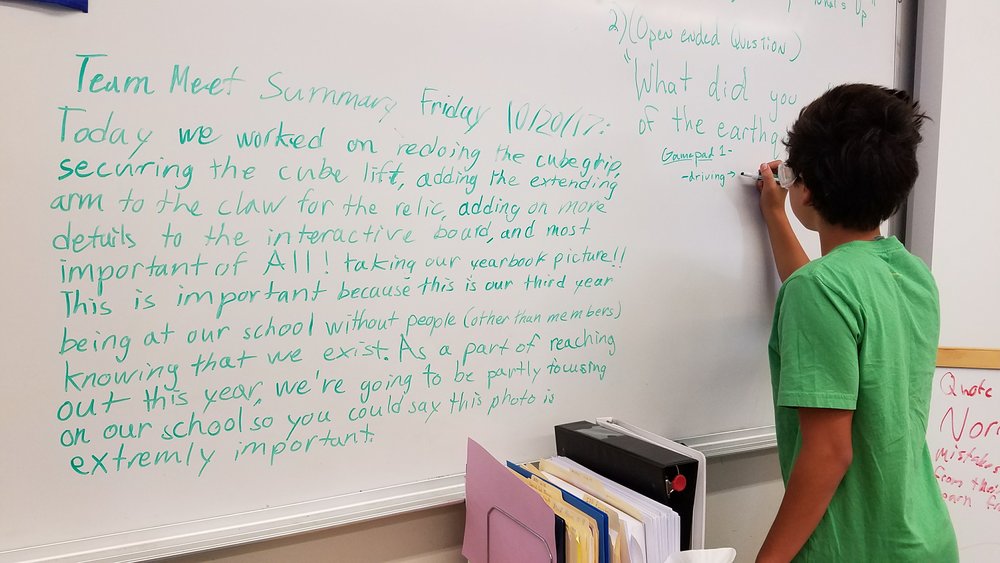 Team Meet Summary Friday 10/20/17:
Today we worked on redoing the cube grip,
securing the cube lift, adding the extending
arm to the claw for the relic, adding on more
details to the interactive board, and most
important of All! taking our yearbook picture!!
This is important because this is our third year
being at our school without people (other than members)
knowing that we exist. As a part of reaching
out this year, we're going to be partly focusing
on our school so you could say this photo is
extremly important.
What's Up"
2) (Open ended Question)
"What did you
of the earthq
Gamepad 1-
-driving→
Quote
Nor
mistakes
from the
learn fr